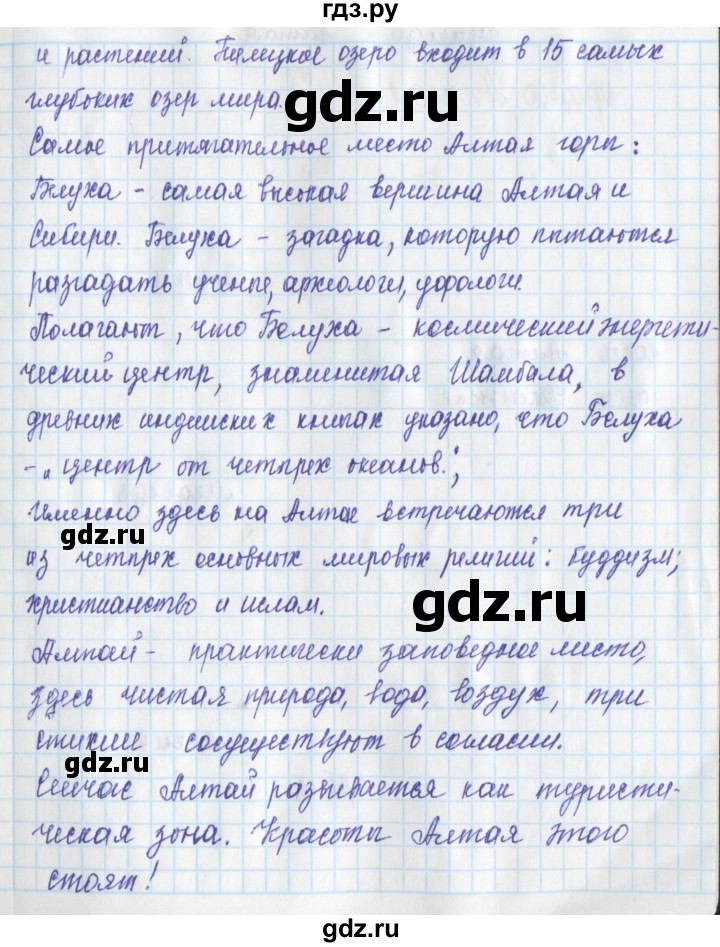 гдз.ру
и растений. Телецкое озеро входит в 15 самых
глубоких озер мира.
gdz.ru
Самое притягательное место Алтая горы:
Белуха - самая высокая вершина Алтая и
Сибири. Белуха - загадка, которую пытаются
разгадать ученые, археологи, уфологи.
Полагают, что Белуха - космический энергети-
ческий центр, знаменитая Шамбала, в
древних индийских книгах указано, что Белуха
- „центр от четырех океанов.“
Именно здесь на Алтае встречаются три
gdz.ru
из четырех основных мировых религий: буддизм,
христианство и ислам.
gdz.ru
Алтай - практически заповедное место,
здесь чистая природа, вода, воздух, три
стихии сосуществуют в согласии.
gdz.ru
Сейчас Алтай развивается как туристи-
ческая зона. Красоты Алтая этого
стоят!
gdz.ru